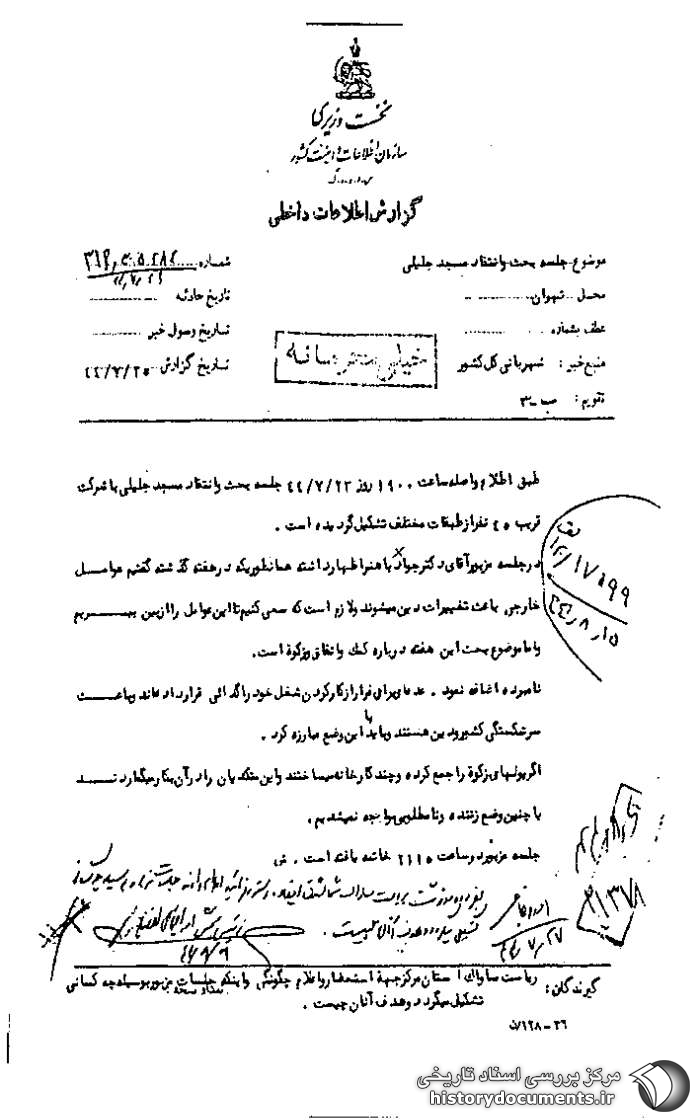 نخست وزیری
سازمان اطلاعات و امنیت کشور
س.ا.و.ا.ک
گزارش اطلاعات داخلی
موضوع: جلسه بحث وانتقاد مسجد جلیلی
شماره
محل: تهران
تاریخ حادثه
عطف بشماره
تاریخ وصول خبر
منبع خبر: شهربانی کل کشور
تاریخ گزارش ۴۴/۷/۲۵
تقویم: ب-۳
خیلی محرمانه
طبق اطلاع واصله ساعت ۱۹۰۰ روز ۴۴/۷/۲۳ جلسه بحث وانتقاد مسجد جلیلی با شرکت
قریب ۴۵ نفر از طبقات مختلف تشکیل گردیده است .
در جلسه مزبور آقای دکتر جواد باهنر اظهار داشته همانطوریکه در هفته گذشته گفتم عوامل
خارجی باعث تغییرات دین میشوند ولازم است که سعی کنیم تا این عوامل را از بین ببریم
واما موضوع بحث این هفته درباره کمک وانفاق وزکوة است.
نامبرده اضافه نمود . عده ای برای فرار از کار کردن شغل خود را گدائی قرار داده اند وباعث
سرشکستگی کشور و دین هستند وباید با این وضع مبارزه کرد .
اگر پولهای زکوة را جمع کرده و چند کارخانه میساختند واین متکدیان را در آن بکار میگماردند
با چنین وضع زننده ونامطلوبی مواجه نمیشدیم.
جلسه مزبور در ساعت ۲۱۱۵ خاتمه یافته است . ش
۴۴/۷/۲۷
۲۱۳۷۸
۴۴/۸/۱۵
گیرندگان: ریاست ساواک استان مرکز جهة استحضار واعلام چگونگی واینکه جلسات مزبور بوسیله چه کسانی
تعداد نسخه
تشکیل میگردد وهدف آنان چیست .
۳۶-۱۲۸/ن
مرکز بررسی اسناد تاریخی
historydocuments.ir